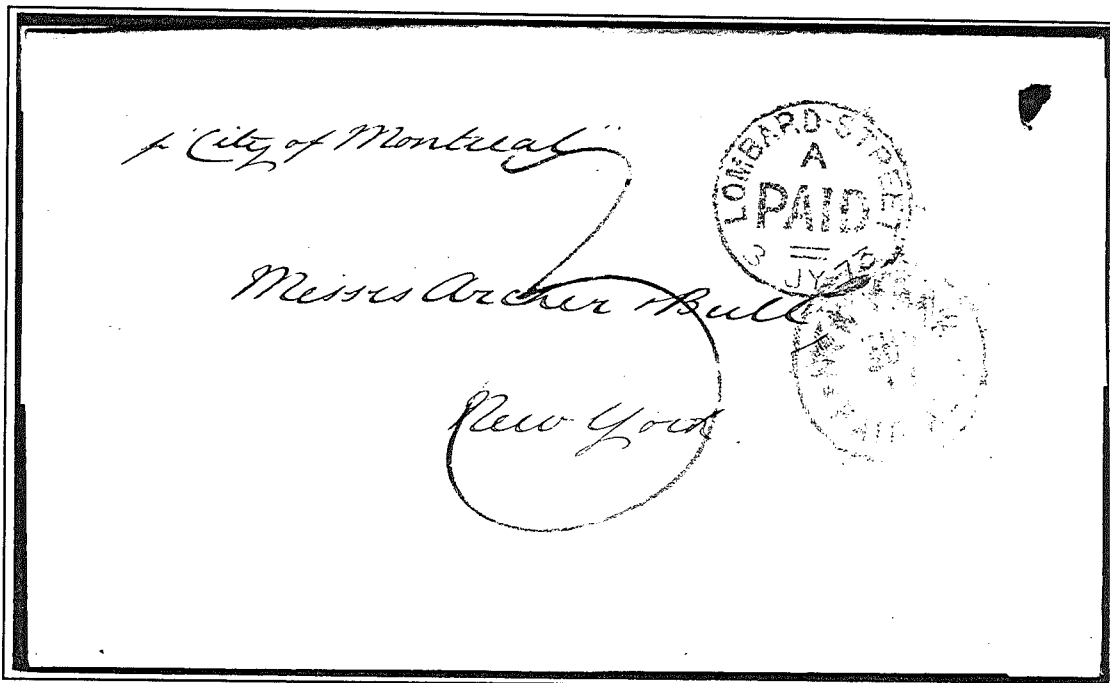 p "City of Montreal"
LOMBARD-STREET
A
PAID
3
JY 73
3
Messrs Archer & Bull
New York